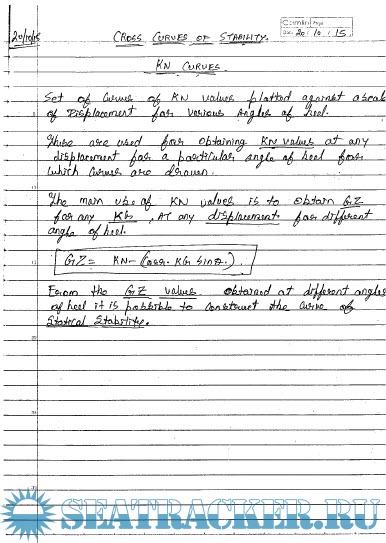 20/10/15
CROSS CURVES OF STABILITY.
Page
Date 20 : 10 : 15
KN CURVES
Set of Curves of KN values plotted against a scale
of Displacement for various angles of heel.
These are used for obtaining KN values at any
displacement for a particular angle of heel for
which curves are drawn.
The main use of KN values is to obtain GZ
for any KG, At any displacement for different
angle of heel.
GZ = KN - KG sinθ.
From the GZ values obtained at different angles
of heel it is possible to construct the curve of
Statical Stability.
SEATRACKER.RU